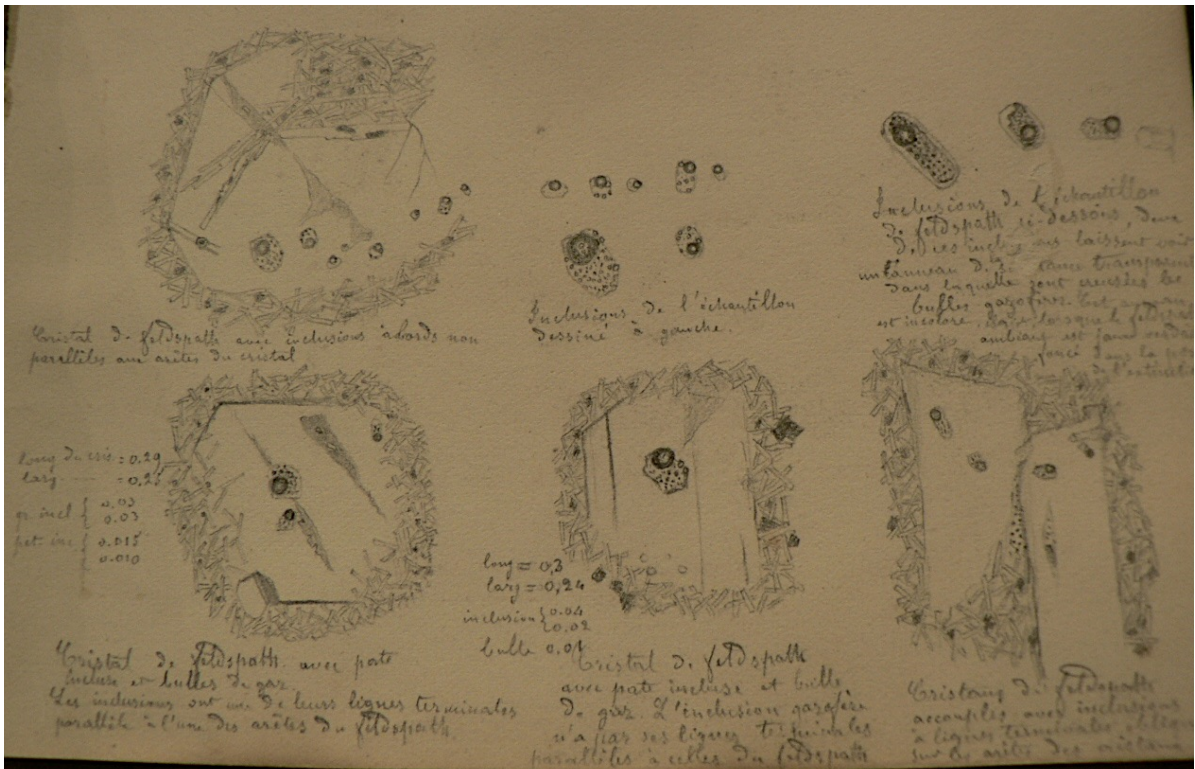 Cristal de feldspath avec inclusions à bords non
parallèles aux arêtes du cristal
Inclusions de l'échantillon
dessiné à gauche.
Inclusions de l'échantillon
de feldspath ci-dessous, deux
de ces inclusions laissent voir
un anneau de transparent
dans laquelle sont creusées les
bulles gazofères. Cet anneau
est incolore, lorsque le feldspath
ambiant est jaune
foncé dans la
de l'extérieur
long du cris = 0.29
larg
gr. incl { 0.03
0.03
pet. inc { 0.015
0.010
Cristal de feldspath avec pate
incluse et bulles de gaz.
Les inclusions ont une de leurs lignes terminales
parallèle à l'une des arêtes du feldspath.
long = 0,3
larg = 0,24
inclusion { 0.04
0.02
bulle 0.01
Cristal de feldspath
avec pate incluse et bulle
de gaz. L'inclusion gazofère
n'a pas ses lignes terminales
parallèles à celles du feldspath
Cristaux de feldspath
accouplés avec inclusions
à lignes terminales obliques
sur les arêtes des cristaux